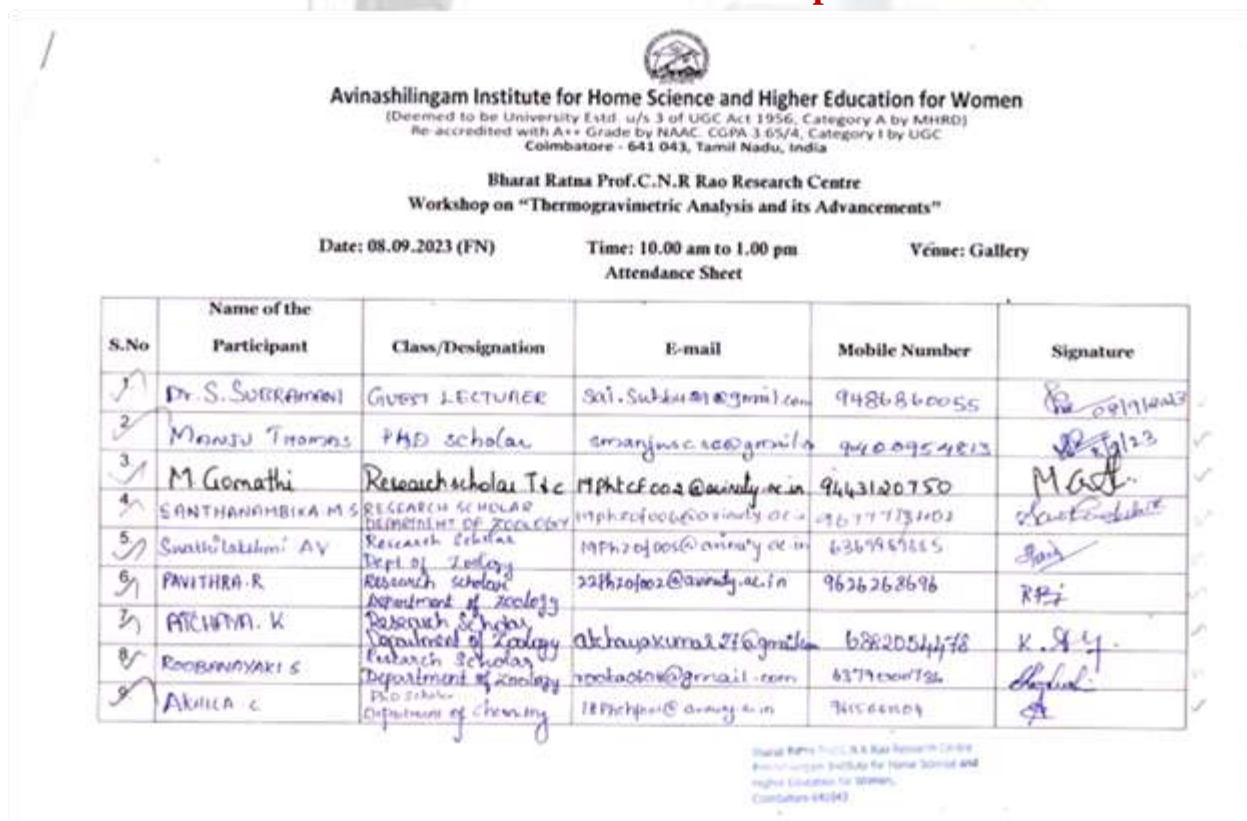 Avinashilingam Institute for Home Science and Higher Education for Women
(Deemed to be University Estd. u/s 3 of UGC Act 1956, Category A by MHRD)
Re-accredited with A++ Grade by NAAC. CGPA 3.65/4, Category I by UGC
Coimbatore - 641 043, Tamil Nadu, India
Bharat Ratna Prof.C.N.R Rao Research Centre
Workshop on “Thermogravimetric Analysis and its Advancements”
Date: 08.09.2023 (FN) Time: 10.00 am to 1.00 pm Venue: Gallery
Attendance Sheet
S.No Name of the Participant Class/Designation E-mail Mobile Number Signature
1 Dr. S. SUBRAMANI GUEST LECTURER 9486860055
2 MANJU THOMAS PhD scholar 9400954813
3 M. Gomathi Research scholar T&C 19PhtCF002@avinuty.ac.in 9443120750
4. SANTHANAMBIKA M S RESEARCH SCHOLAR
DEPARTMENT OF ZOOLOGY
5. Swathilakshmi AV Research Scholar
Dept of Zoology 19Phzof005@avinuty.ac.in
6 PAVITHRA.R Research scholar
Department of Zoology 22Phzof002@avinuty.ac.in 9626268696
7 ATCHAYA. K Research Scholar
Department of Zoology
8 ROOBANAYAKI S Research Scholar
Department of Zoology
9 AKHILA C PhD Scholar
Department of Chemistry
Bharat Ratna Prof. C.N.R Rao Research Centre
Avinashilingam Institute for Home Science and
Higher Education for Women,
Coimbatore-641043